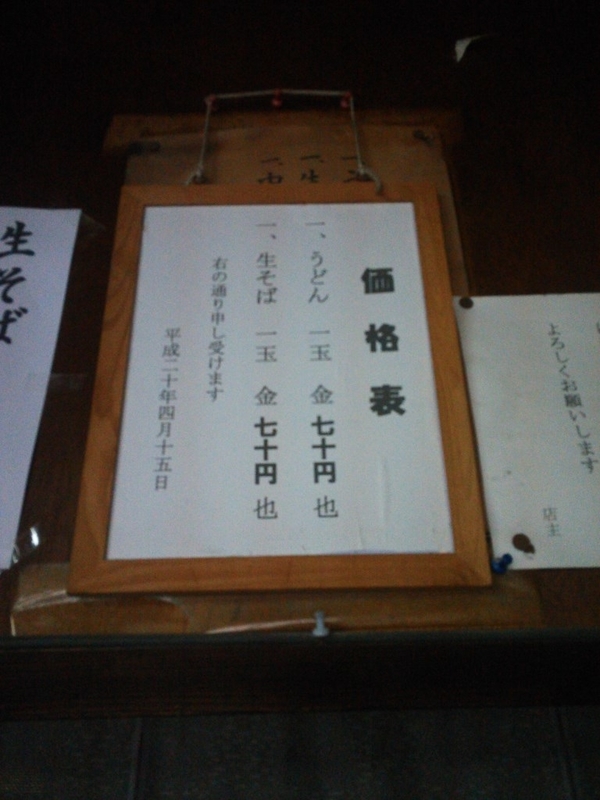 よろしくお願いします
店主
価格表
一、うどん 一玉 金七十円也
一、生そば 一玉 金七十円也
右の通り申し受けます
平成二十年四月十五日
生そば